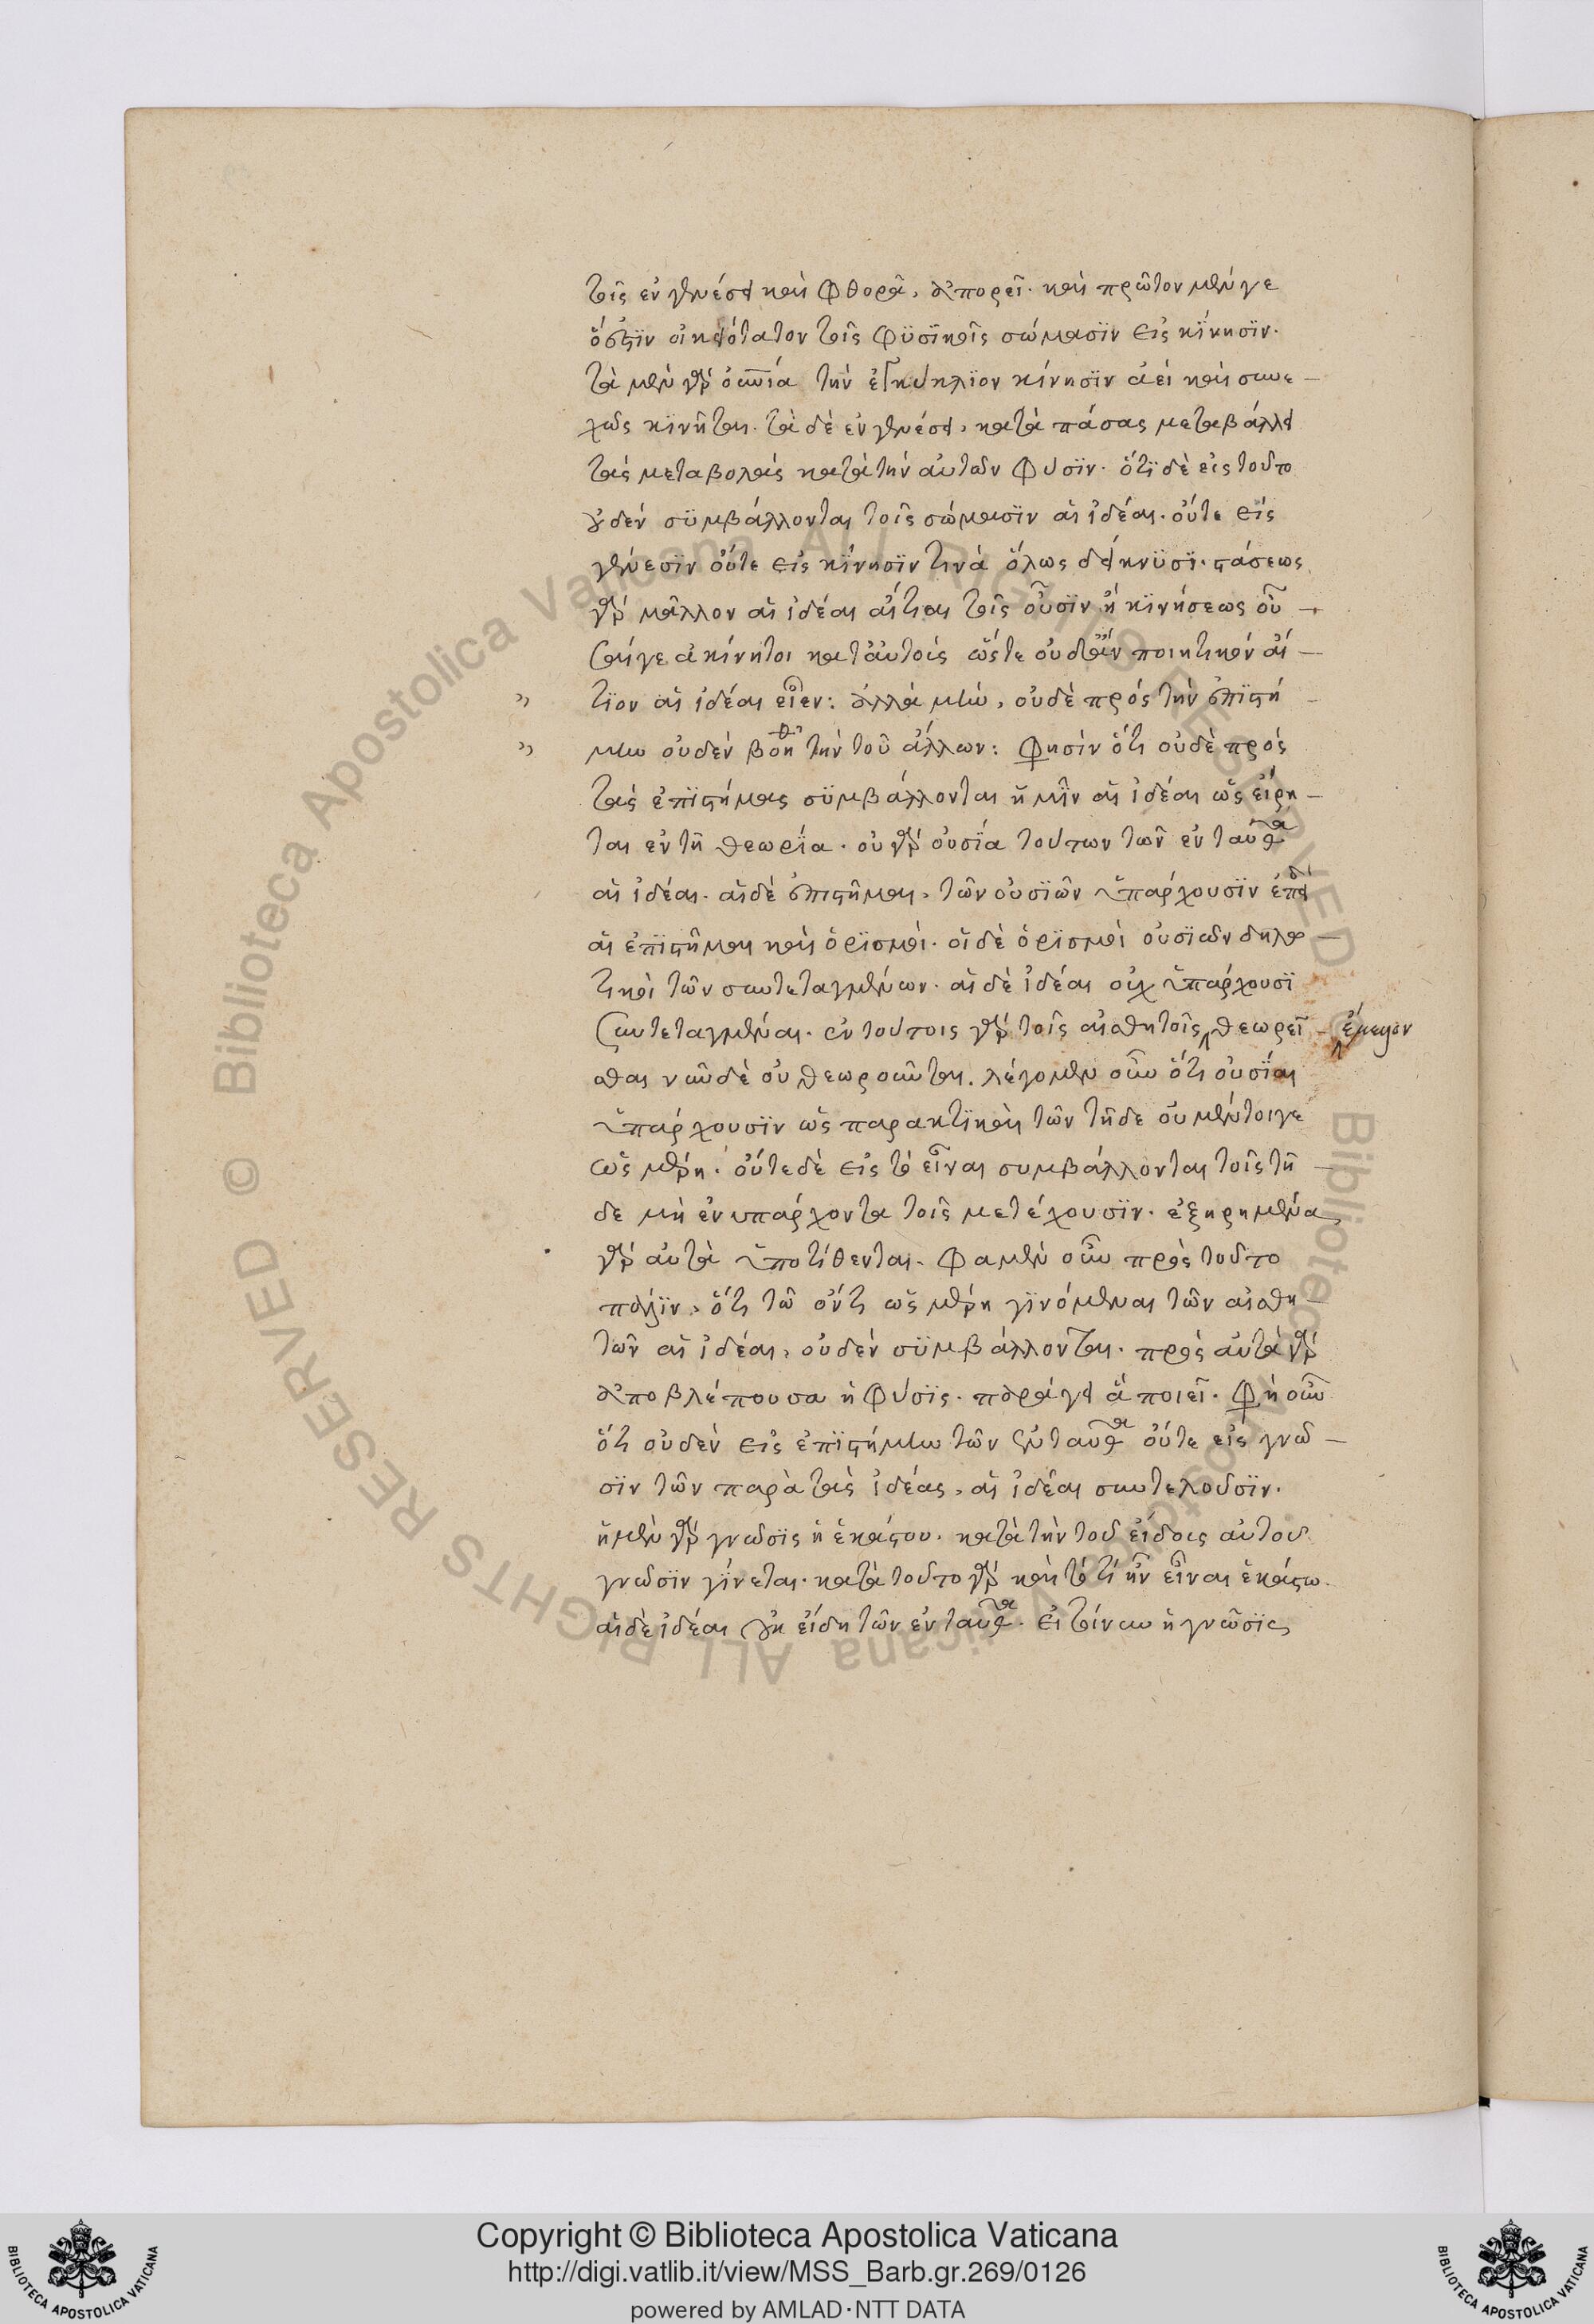 τοῖς ἐν γενέσει καὶ φθορᾶ, ἀπορεῖ. καὶ πρῶτον μέν γε
ὅ ἐστιν οἰκειότατον τοῖς φϋσϊκοῖς σώμασϊν εἰς κίνησϊν.
τὰ μὲν γὰρ οὐράνια τὴν ἐγκύκλϊον κίνησϊν ἀεὶ καὶ συνε –
χῶς κϊνεῖται. τὰ δὲ ἐν γενέσει, κατὰ πάσας μεταβάλλει
τὰς μεταβολὰς κατὰ τὴν αὐτῶν φύσϊν. ὅτϊ δὲ εἰς τοῦτο
οὐδὲν σϋμβάλλονται τοῖς σώμασϊν αἱ ἰδέαι. οὔτε εἰς
γένεσϊν οὔτε εἰς κίνησϊν τινὰ ὅλως δείκνϋσϊ. στάσεως
γὰρ μᾶλλον αἱ ἰδέαι αἴτιαι τοῖς οὖσϊν ἢ κϊνήσεως οὖ –
σαί γε ἀκίνητοι κατ' αὐτούς ὥστε οὐδ' ἂν ποιητικὸν αἴ –
" τϊον αἱ ἰδέαι εἶεν: ἀλλὰ μὴν, οὐδὲ πρὸς τὴν ἐπϊστή –
" μην οὐδὲν βοηθεῖ τὴν τοῦ ἄλλων: φησὶν ὅτι οὐδὲ πρὸς
τὰς ἐπϊστήμας σϋμβάλλονται ἡμῖν αἱ ἰδέαι ὡς εἴρη –
ται ἐν τῆ θεωρϊα. οὐ γὰρ οὐσϊα τούτων τῶν ἐνταῦθα
αἱ ἰδέαι. αἱ δὲ ἐπιστῆμαι, τῶν οὐσϊῶν ὑπάρχουσϊν ἐπεὶ δὲ
αἱ ἐπϊστῆμαι καὶ ὁρϊσμοὶ. οἱ δὲ ὁρϊσμοὶ οὐσϊῶν δηλω –
τικοὶ τῶν συντεταγμένων. αἱ δὲ ἰδέαι οὐχ ὑπάρχουσϊ
συντεταγμέναι. ἐν τούτοις γὰρ τοῖς αἰσθητοῖς θεωρεῖ – ἔμελλον
σθαι νῦν δὲ οὐ θεωροῦνται. λέγομεν οὖν ὅτι οὐσίαι
ὑπάρχουσϊν ὡς παρακτϊκαὶ τῶν τῆδε οὐ μέντοιγε
ὡς μέρη. οὔτε δὲ εἰς τὸ εἶναι συμβάλλονται τοῖς τῆ –
δε μὴ ἐνυπάρχοντα τοῖς μετέχουσϊν. ἐξηρημένα
γὰρ αὐτὰ ὑποτίθενται. φαμὲν οὖν πρὸς τοῦτο
πάλϊν, ὅτι τῶ ὄντι ὡς μέρη γϊνόμεναι τῶν αἰσθη –
τῶν αἱ ἰδέαι, οὐδὲν σϋμβάλλονται. πρὸς αὐτὰ γὰρ
ἀποβλέπουσα ἡ φύσϊς. παράγει ἃ ποιεῖ. φησὶ οὖν
ὅτι οὐδὲν εἰς ἐπϊστήμην τῶν ἐνταῦθα οὔτε εἰς γνῶ –
σϊν τῶν παρὰ τὰς ἰδέας, αἱ ἰδέαι συντελοῦσϊν.
ἡ μὲν γὰρ γνῶσϊς ἡ ἑκάστου. κατὰ τὴν τοῦ εἴδους αὐτοῦ
γνῶσϊν γίνεται. κατὰ τοῦτο γὰρ καὶ τὸ τί ἦν εἶναι ἑκάστω.
αἱ δὲ ἰδέαι οὐκ εἴδη τῶν ἐνταῦθα. εἰ τοίνυν ἡ γνῶσϊς
Copyright © Biblioteca Apostolica Vaticana
http://digi.vatlib.it/view/MSS_Barb.gr.269/0126
powered by AMLAD·NTT DATA